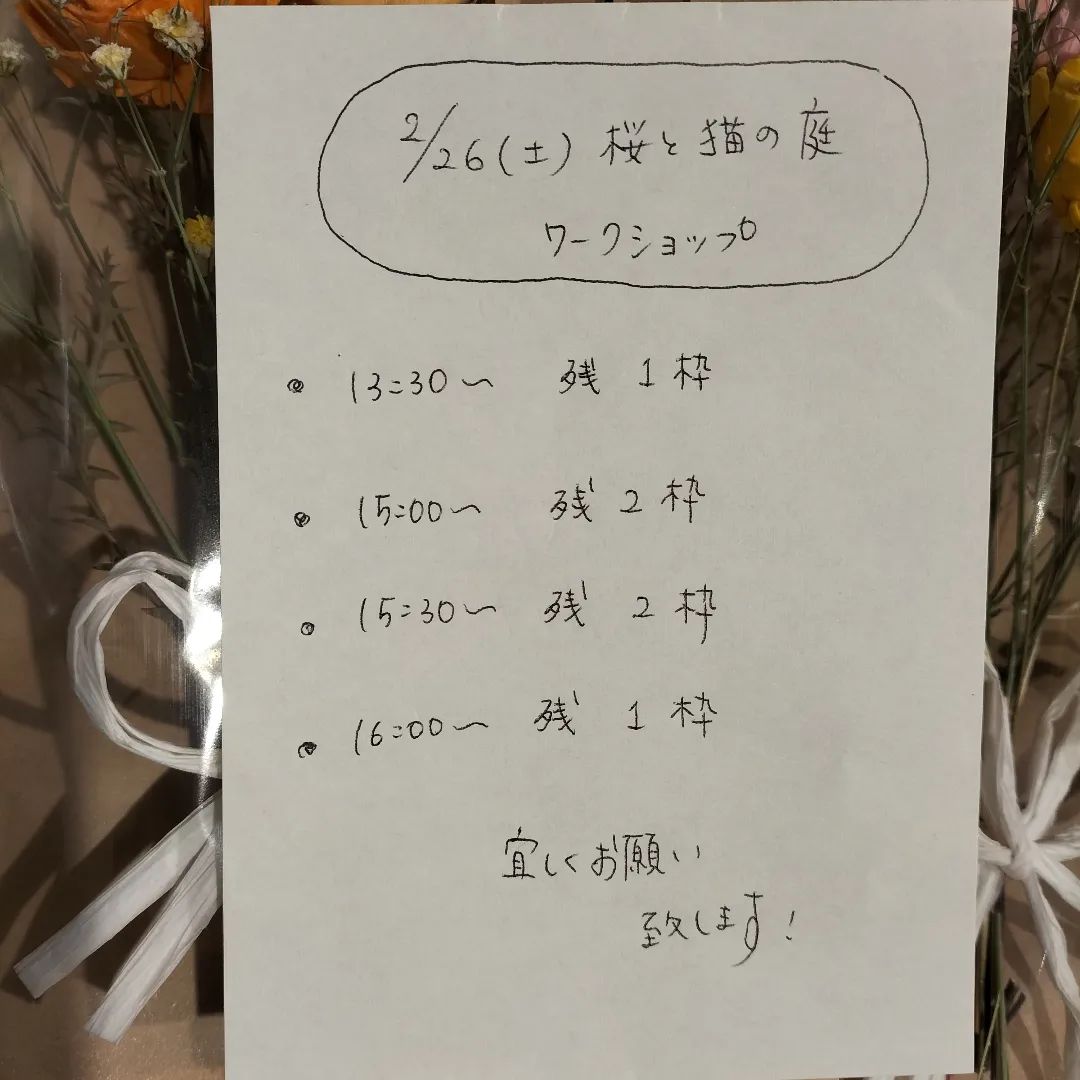 2/26(土) 桜と猫の庭
ワークショップ
• 13:30〜 残 1 枠
• 15:00〜 残 2 枠
• 15:30〜 残 2 枠
• 16:00〜 残 1 枠
宜しくお願い
致します!